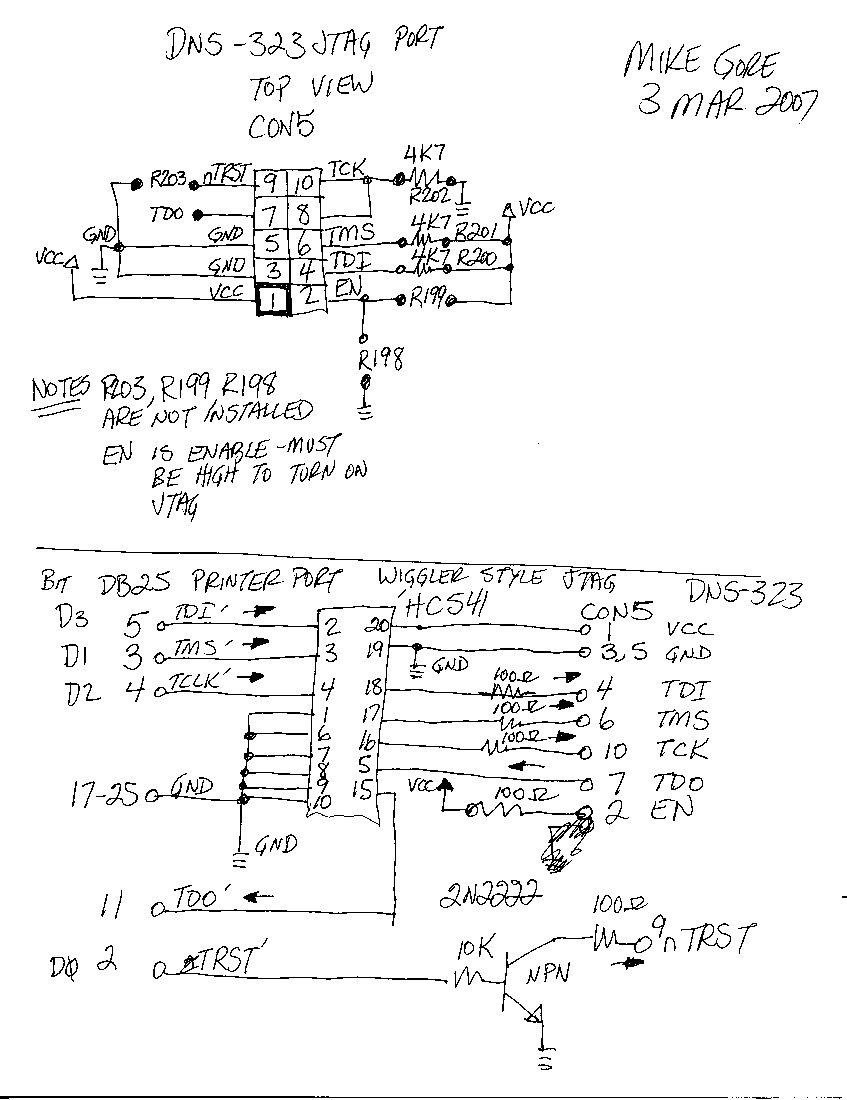 DNS-323 JTAG PORT
TOP VIEW
CON5
MIKE GORE
3 MAR 2007
R203 nTRST 9 10 TCK 4K7 R202
TDO 7 8
GND GND 5 6 TMS 4K7 R201 VCC
VCC GND 3 4 TDI 4K7 R200
VCC 1 2 EN R199
R198
NOTES R203, R199 R198
ARE NOT INSTALLED
EN IS ENABLE - MUST
BE HIGH TO TURN ON
JTAG
BIT DB25 PRINTER PORT WIGGLER STYLE JTAG DNS-323
'HC541 CON5
D3 5 TDI' 2 20 1 VCC
D1 3 TMS' 3 19 GND 3,5 GND
D2 4 TCLK' 4 18 100Ω 4 TDI
1 17 100Ω 6 TMS
6 16 100Ω 10 TCK
7 5 7 TDO
8
9
17-25 GND 10 15 VCC 100Ω 2 EN
GND
11 TDO' 2N2222
D0 2 TRST' 10K NPN 100Ω 9 nTRST